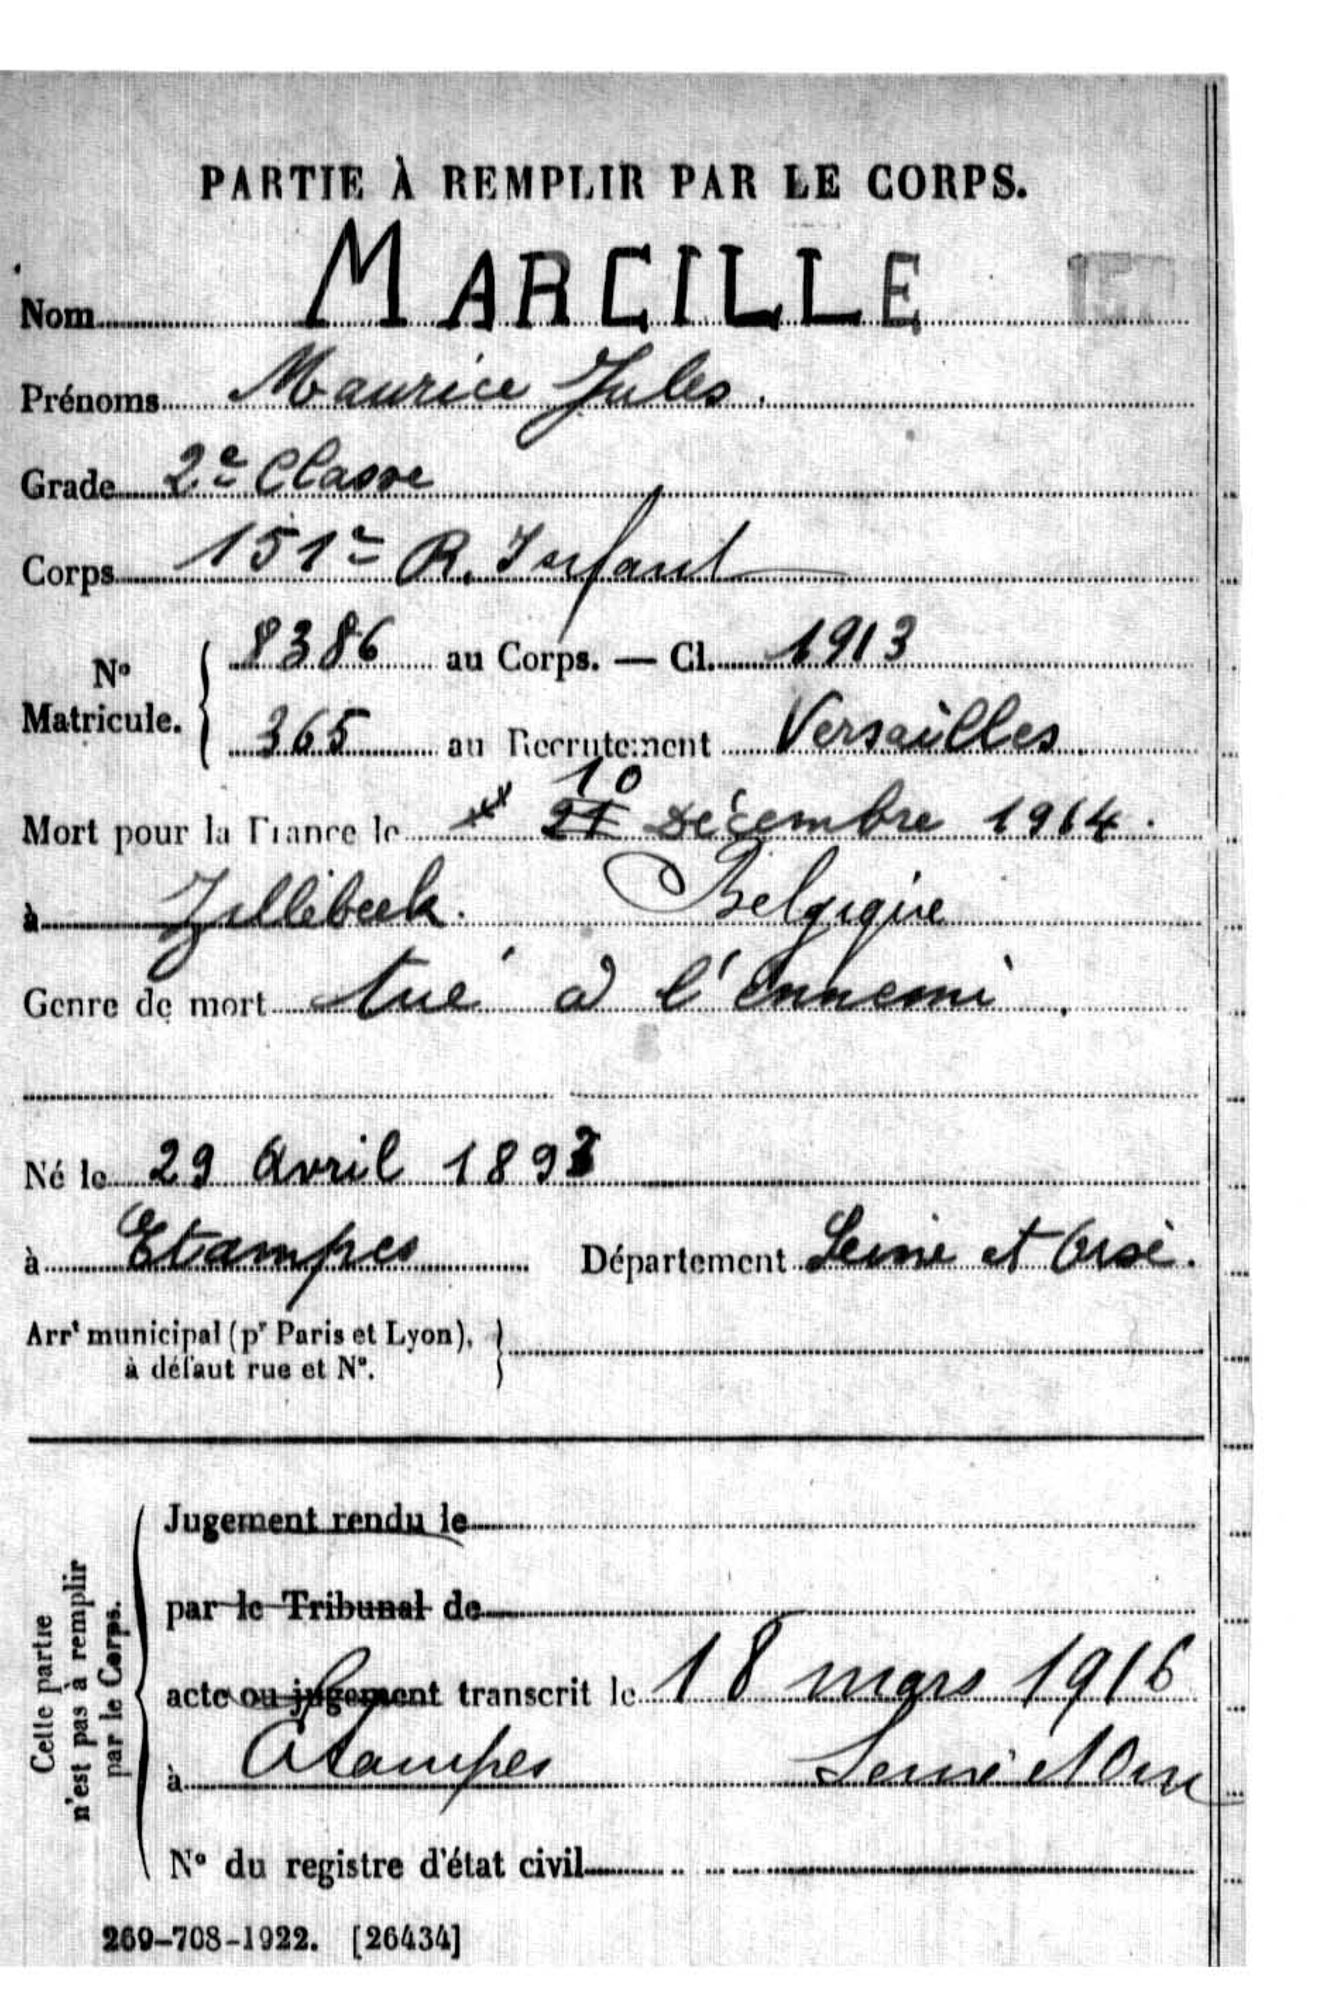 PARTIE À REMPLIR PAR LE CORPS.
Nom MARCILLE
Prénoms Maurice Jules.
Grade 2e Classe
Corps 151e R. Infant
N° Matricule. 8386 au Corps. — Cl. 1913
365 au Recrutement Versailles
10
Mort pour la France le 21 Décembre 1914.
à Zillebeek. Belgique
Genre de mort tué à l'Ennemi.
Né le 29 Avril 1893
à Etampes Département Seine et Oise.
Arrt municipal (pr Paris et Lyon),
à défaut rue et N°.
Cette partie n'est pas à remplir par le Corps.
Jugement rendu le
par le Tribunal de
acte ou jugement transcrit le 18 mars 1916
à Etampes Seine et Oise
N° du registre d'état civil
269-708-1922. [26434]